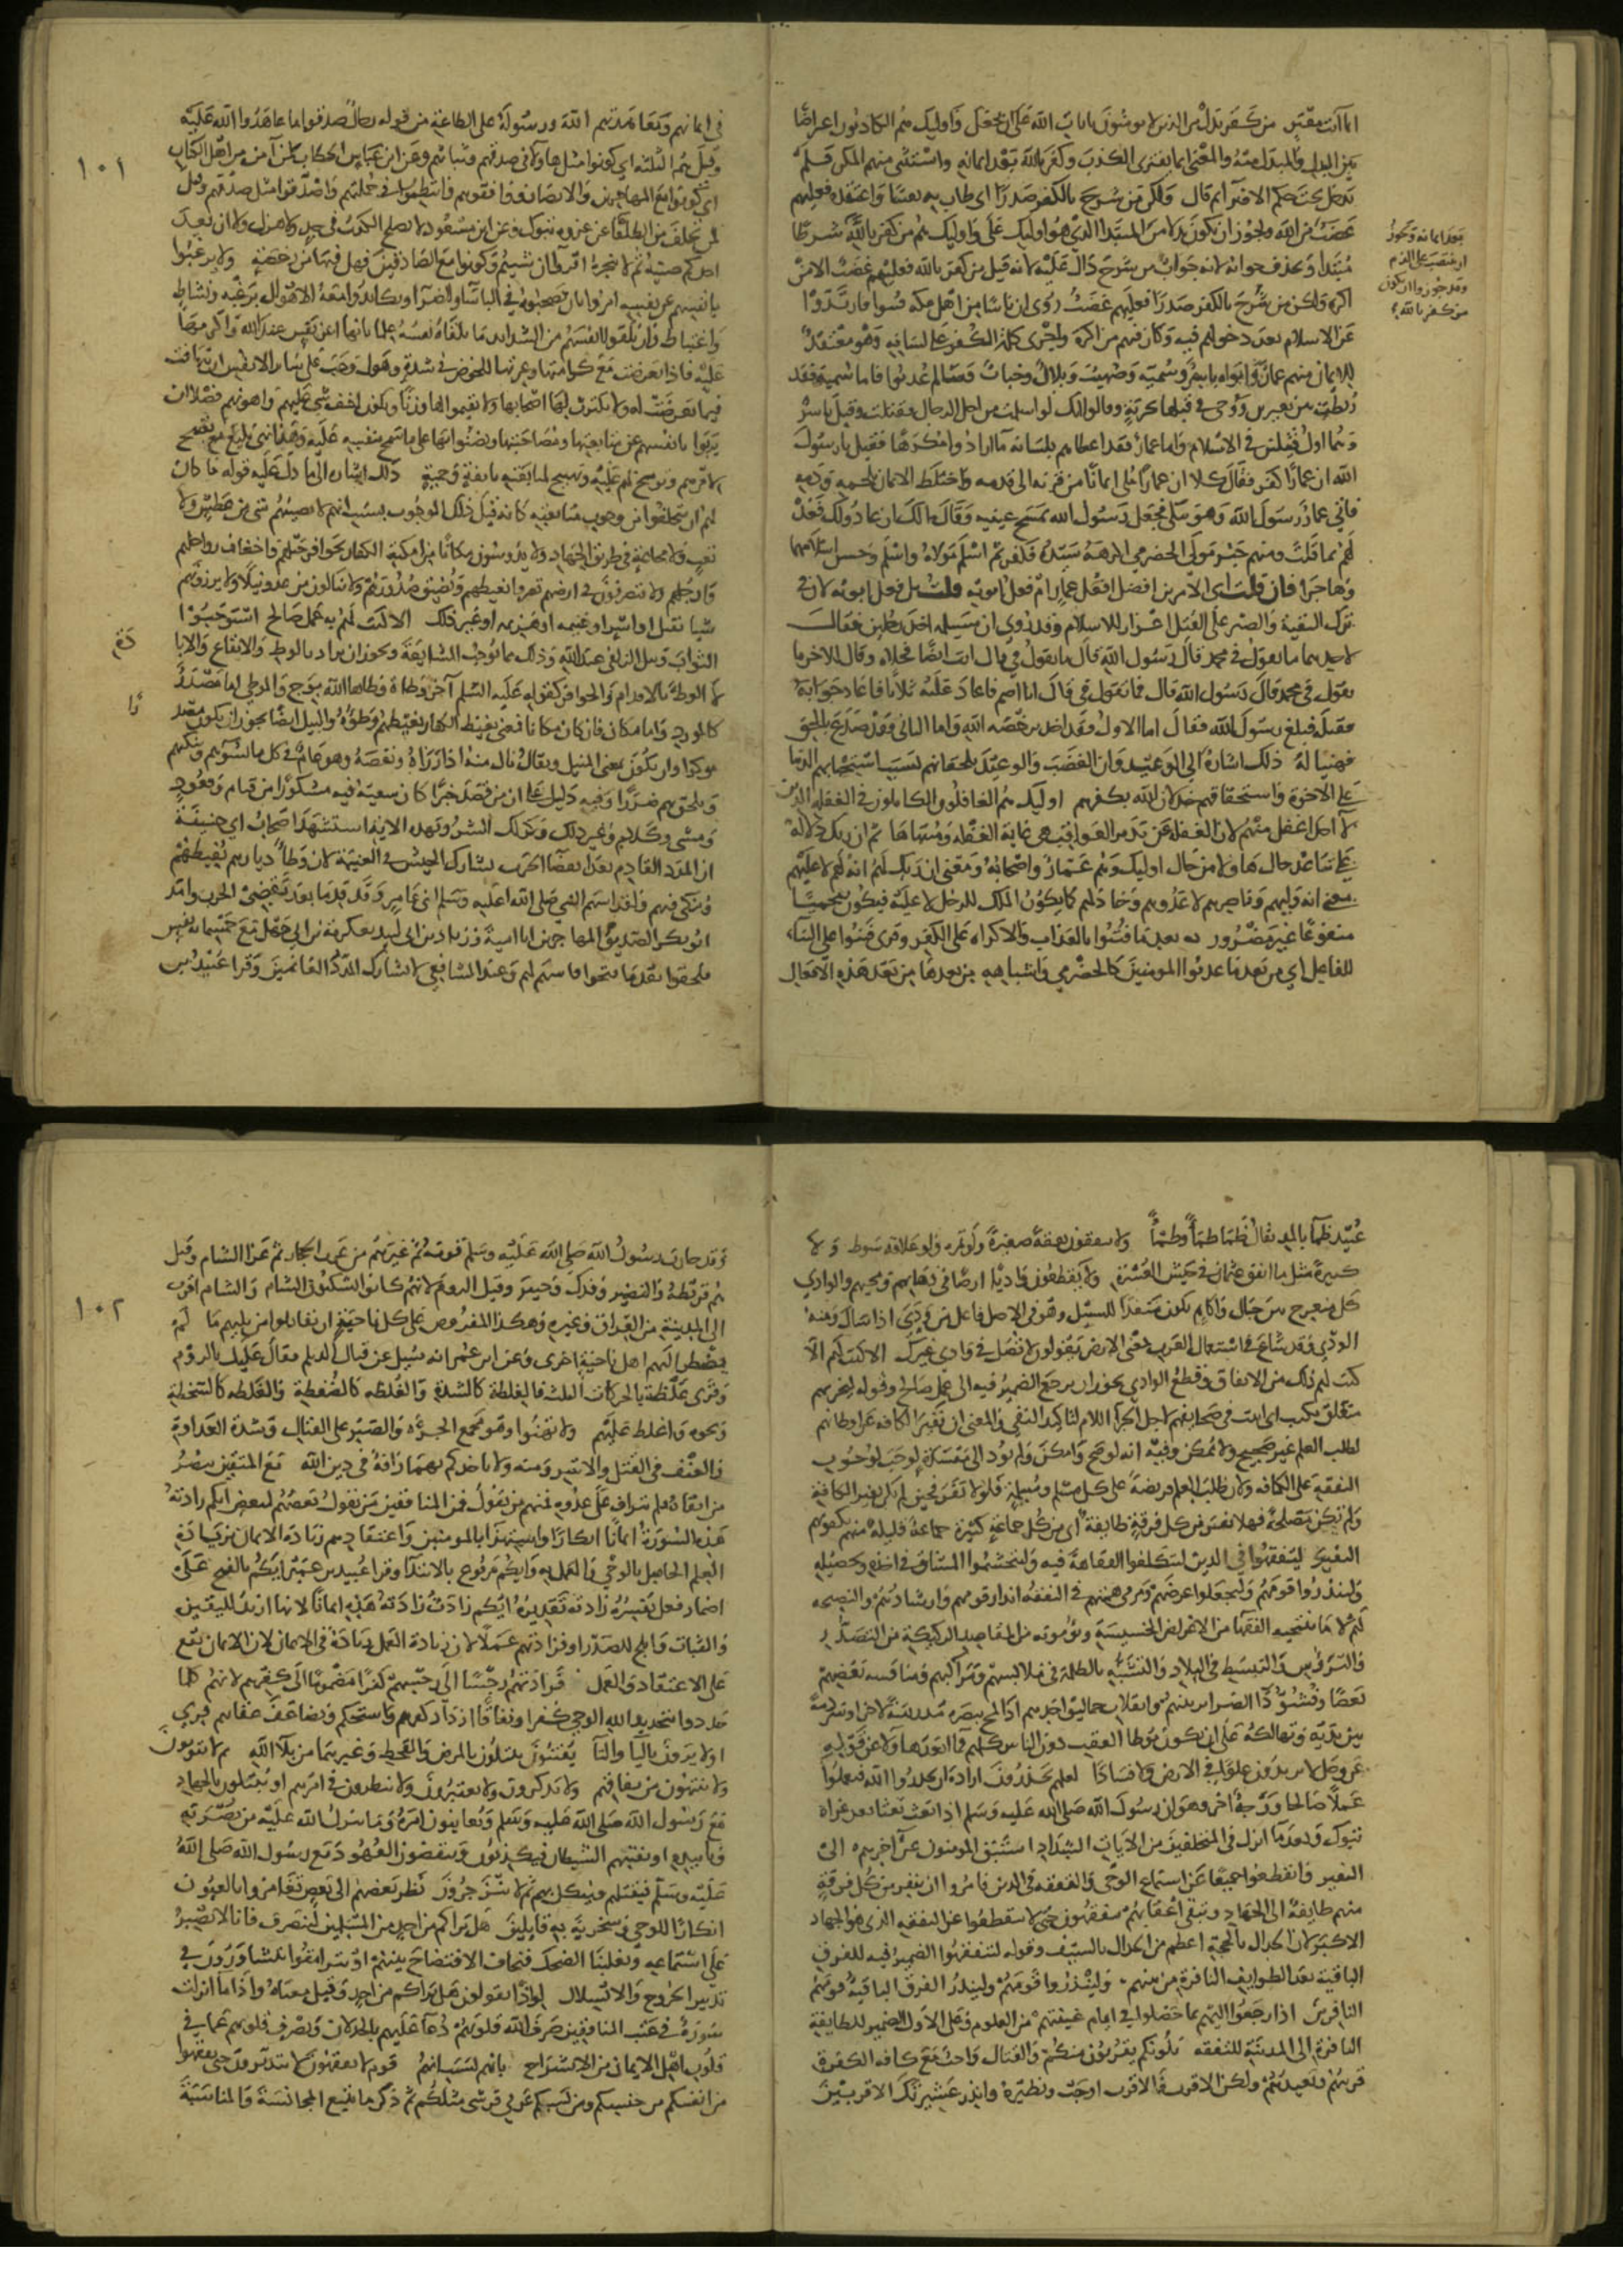 انما انت مفتر من كفر بدل من الذين لا يومنون بايات الله على ان يجعل واوليك هم الكاذبون اعراضا
بين البدل والمبدل منه والمعنى انما يفترى الكذب من كفر بالله من بعد ايمانه واستثنى منهم المكره فلم
يدخل تحت حكم الافتراء ثم قال ولكن من شرح بالكفر صدرا اي طاب به نفسا واعتقده فعليهم
غضب من الله ويجوز ان يكون بدلا من المبتدا الذي هو اوليك على واوليك هم من كفر بالله شرطا
مبتدا ويحذف جوابه لانه جواب من شرح دال عليه كانه قيل من كفر بالله فعليهم غضب الا من
اكره ولكن من شرح بالكفر صدرا فعليهم غضب روى ان ناسا من اهل مكه فتنوا فارتدوا
عن الاسلام بعد دخولهم فيه وكان فيهم من اكره واجرى كلمة الكفر على لسانه وهو معتقد
للايمان منهم عمار وابواه ياسر وسمية وصهيب وبلال وخباب وسالم عذبوا فاما سمية فقد
ربطت بين بعيرين ووجى في قبلها بحربة وقالوا انك اسلمت من اجل الرجال فقتلت وقتل ياسر
وهما اول قتيلين في الاسلام واما عمار فقد اعطاهم بلسانه ما ارادوا مكرها فقيل يا رسول
الله ان عمارا كفر فقال كلا ان عمارا ملى ايمانا من قرنه الى قدمه واختلط الايمان بلحمه ودمه
فاتى عمار رسول الله وهو يبكي فجعل رسول الله يمسح عينيه وقال مالك ان عادوا لك فعد
لهم بما قلت ومنهم جبر مولى الحضرمي اكرهه سيده فكفر ثم اسلم مولاه واسلم وحسن اسلامهما
وهاجرا فان قلت اى الامرين افضل افعل عمار ام فعل ابويه قلت بل فعل ابويه لان في
ترك التقية والصبر على القتل اعزازا للاسلام وقد روى ان مسيلمة اخذ رجلين فقال
لاحدهما ما تقول في محمد قال رسول الله قال ما تقول في قال انت ايضا فخلاه وقال للاخر ما
تقول في محمد قال رسول الله قال فما تقول في قال انا اصم فاعاد عليه ثلاثا فاعاد جوابه
فقتله فبلغ رسول الله فقال اما الاول فقد اخذ برخصه الله واما الثاني فقد صدع بالحق
فهنيا له ذلك اشارة الى الوعيد وان الغضب والوعيد يلحقانهم بسبب استحبابهم الدنيا
على الاخرة واستحقاقهم خذلان الله بكفرهم اوليك هم الغافلون الكاملون في الغفلة الذين
لا احد اغفل منهم لان الغفلة عن تدبر العواقب هى غاية الغفلة ومنتهاها ثم ان ربك دلالة
على تباعد حال هاولا من حال اوليك وهم عمار واصحابه ومعنى ان ربك لهم انه لهم لا عليهم
بمعنى انه وليهم وناصرهم لا عدوهم وخاذلهم كما يكون الملك للرجل لا عليه فيكون محميا
منفوعا غير مضرور من بعد ما فتنوا بالعذاب والاكراه على الكفر وقرى فتنوا على البناء
للفاعل اي من بعد ما عذبوا المومنين كالحضرمي واشباهه من بعدها من بعد هذه الافعال
بعد ايمانه ويجوز
ان ينتصب على الذم
وقد جوزوا ان يكون
من كفر بالله
١٠١
في ايمانهم ومعاهدتهم الله ورسوله على الطاعة من قوله رجال صدقوا ما عاهدوا الله عليه
وقيل هم الثلثة اي كونوا مثل هاولا في صدقهم وثباتهم وعن ابن عباس الخطاب لمن آمن من اهل الكتاب
اي كونوا مع المهاجرين والانصار ووافقوهم وانتظموا في جملتهم واصدقوا مثل صدقهم وقيل
لمن تخلف من الطلقا عن غزوة تبوك وعن ابن مسعود لا يصلح الكذب في جد ولا هزل ولا ان يعد
احدكم صبيه ثم لا ينجزه اقروا ان شيتم وكونوا مع الصادقين فهل فيها من رخصة ولا يرغبوا
بانفسهم عن نفسه امروا بان يصحبوه في الباسآ والضرآ وان يكابدوا معه الاهوال برغبة ونشاط
واغتباط وان يلقوا انفسهم من الشدايد ما تلقاه نفسه علما بانها اعز نفس عند الله واكرمها
عليه فاذا تعرضت مع كرامتها وعزتها للخوض في شدة وهول وجب على ساير الانفس ان تتهافت
فيما تعرضت له ولا يكترث لها اصحابها ولا يقيموا لها وزنا وتكون اخف شي عليهم واهونه فضلا ان
يربوا بانفسهم عن متابعتها ومصاحبتها ويضنوا بها على ما سمح بنفسه عليه وهذا نهى بليغ مع تقبيح
لامرهم وتوبيخ لهم عليه وتهييج لمتابعته بانفة وحمية ذلك اشارة الى ما دل عليه قوله ما كان
لهم ان يتخلفوا من وجوب متابعته كانه قيل ذلك الوجوب بسبب انهم لا يصيبهم شى من عطش ولا
تعب ولا مجاعة في طريق الجهاد ولا يدوسون مكانا من امكنة الكفار بحوافر خيلهم واخفاف رواحلهم
وارجلهم ولا يتصرفون في ارضهم تصرفا يغيظهم ويضيق صدورهم ولا ينالون من عدو نيلا ولا يرزونهم
شيا بقتل او اسر او غنيمه او هزيمه او غير ذلك الا كتب لهم به عمل صالح استوجبوا
الثواب ونيل الزلفى عند الله وذلك مما يوجب المشايعة ويجوز ان يراد بالوطء والايقاع والابادة
لا الوطء بالاقدام والحوافر كقوله عليه السلم آخر وطاة وطاها الله بوج والموطى اما مصدر
كالمورد واما مكان فان كان مكانا فمعنى يغيظ الكفار يغيظهم وطؤه والنيل ايضا يجوز ان يكون مصدر
موكدا وان يكون بمعنى المنيل ويقال نال منه اذا رزاه ونقصه وهو عام في كل ما يسوهم وينكبهم
ويلحق بهم ضررا وفيه دليل على ان من قصد خيرا كان سعيه فيه مشكورا من قيام وقعود
ومشى وكلام وغير ذلك وكذلك الشر وبهذه الاية استشهد اصحاب ابي حنيفة
ان المدد القادم بعد انقضا الحرب يشارك الجيش في الغنيمة لان وطا ديارهم يغيظهم
وينكى فيهم ولقد اسهم النبي صلى الله عليه وسلم لابنى عامر وقد قدما بعد تقضى الحرب وامد
ابو بكر الصديق المهاجر بن ابى امية وزياد بن ابى لبيد بعكرمة بن ابي جهل مع خمسمائة نفس
فلحقوا بعد ما فتحوا فاسهم لهم وعند الشافعي لا يشارك المدد الغانمين وقرا عبيد بن
عبيد ظما بالمد يقال ظمئ ظماة وظمآ ولا ينفقون نفقة صغيرة ولو تمره ولو علاقه سوط ولا
كبيرة مثل ما انفق عثمان في جيش العسرة ولا يقطعون واديا اي ارضا في ذهابهم ومجيهم والوادي
كل منعرج بين جبال وآكام يكون منفذا للسيل وهو في الاصل فاعل من ودى اذا سال ومنه
الودي وقد شاع في استعمال العرب بمعنى الارض يقولون لا تصل في وادي غيرك الا كتب لهم الا
كتب لهم ذلك من الانفاق وقطع الوادي يجوز ان يرجع الضمير فيه الى عمل صالح وقوله ليجزيهم
متعلق بكتب اى اثبت في صحايفهم لاجل الجزا اللام لتاكيد النفي والمعنى ان نفير الكافة عن اوطانهم
لطلب العلم غير صحيح ولا ممكن وفيه انه لو صح وامكن ولم يود الى مفسدة لوجب لوجوب
التفقه على الكافة ولان طلب العلم فريضة على كل مسلم ومسلمة فلولا نفر فحين لم يكن نفير الكافة
ولم تكن مصلحة فهلا نفر من كل فرقة طايفة اى من كل جماعة كثيرة جماعة قليلة منهم يكفونهم
النفير ليتفقهوا في الدين ليتكلفوا الفقاهة فيه ويتجشموا المشاق في اخذه وتحصيله
ولينذروا قومهم وليجعلوا غرضهم ومرمى همتهم في التفقه انذار قومهم وارشادهم والنصيحه
لهم لا ما ينتحيه الفقها من الاغراض الخسيسة ويؤمونه من المقاصد الركيكة من التصدر
والترؤس والتبسط في البلاد والتشبه بالظلمة في ملابسهم ومراكبهم ومنافسة بعضهم
بعضا وفشو دا الضراير بينهم وانقلاب حماليق احدهم اذا لمح ببصره مدرسة لاخر او شرذمة
بين يديه وتهالكه على ان يكون موطا العقب دون الناس كلهم فما ابعد هاولا عن قوله
عز وجل لا يريدون علوا في الارض ولا فسادا لعلهم يحذرون ارادة ان يحذروا الله فيعملوا
عملا صالحا ووجه آخر وهو ان رسول الله صلى الله عليه وسلم اذا بعث بعثا بعد غزاة
تبوك وبعد ما انزل في المتخلفين من الايات الشداد استبق المومنون عن آخرهم الى
النفير وانقطعوا جميعا عن استماع الوحى والتفقه في الدين فامروا ان ينفر من كل فرقة
منهم طايفة الى الجهاد وتبقى اعقابهم يتفقهون حتى لا ينقطعوا عن التفقه الذى هو الجهاد
الاكبر لان الجدال بالحجة اعظم من الجدال بالسيف وقوله ليتفقهوا الضمير فيه للفرق
الباقية بعد الطوايف النافرة من بينهم ولينذروا قومهم ولينذر الفرق الباقية قومهم
النافرين اذا رجعوا اليهم بما حصلوا في ايام غيبتهم من العلوم وعلى الاول الضمير للطايفة
النافرة الى المدينة للتفقه يلونكم يقربون منكم والقتال واجب مع كافة الكفرة
قريبهم وبعيدهم ولكن الاقرب فالاقرب اوجب ونظيره وانذر عشيرتك الاقربين
١٠٢
وقد حارب رسول الله صلى الله عليه وسلم قومه ثم غيرهم من عرب الحجاز ثم غزا الشام وقيل
هم قريظة والنضير وفدك وخيبر وقيل الروم لانهم كانوا يسكنون الشام والشام اقرب
الى المدينة من العراق وغيره وهكذا المفروض على كل ناحية ان يقاتلوا من يليهم ما لم
يضطر اليهم اهل ناحية اخرى وعن ابن عمر انه سئل عن قتال الديلم فقال عليك بالروم
وقرى غلظة بالحركات الثلث فالغلظة كالشدة والغلظه كالضغطة والغلظه كالسخطة
ونحوه واغلظ عليهم ولا تهنوا وهو يجمع الجرأة والصبر على القتال وشدة العداوة
والعنف في القتل والاسر ومنه ولا تاخذكم بهما رافة في دين الله مع المتقين ينصر
من اتقاه فلم يتراف على عدوه فمنهم من يقول فمن المنافقين من يقول بعضهم لبعض ايكم زادته
هذه السورة ايمانا انكارا واستهزا بالمومنين واعتقادهم زيادة الايمان بزيادة
العلم الحاصل بالوحي والعمل به وايكم مرفوع بالابتدا وقرا عبيد بن عمير ايكم بالفتح على
اضمار فعل يفسره زادته تقديره ايكم زادت زادته هذه ايمانا لانها ازيد لليقين
والثبات واثلج للصدر او فزادتهم عملا لان زيادة العمل زيادة في الايمان لان الايمان يقع
على الاعتقاد والعمل فزادتهم رجسا الى رجسهم كفرا مضموما الى كفرهم لانهم كلما
جددوا بتجديد الله الوحي كفرا ونفاقا ازداد كفرهم واستحكم وتضاعف عقابهم قرى
اولا يرون باليا والتا يفتنون يبتلون بالمرض والقحط وغيرهما من بلا الله ثم لا يتوبون
ولا ينتهون من نفاقهم ولا يذكرون ولا يعتبرون ولا ينظرون في امرهم او يبتلون بالجهاد
مع رسول الله صلى الله عليه وسلم ويعاينون امره وما ينزل الله عليه من نصرته
وتاييده او يفتنهم الشيطان فيكذبون وينقضون العهود مع رسول الله صلى الله
عليه وسلم فيقتلهم وينكل بهم ثم لا ينزجرون نظر بعضهم الى بعض تغامزوا بالعيون
انكارا للوحي وسخرية به قايلين هل يراكم من احد من المسلمين لننصرف فانا لا نصبر
على استماعه ويغلبنا الضحك فنخاف الافتضاح بينهم او ترامقوا يتشاورون في
تدبير الخروج والانسلال لواذا يقولون هل يراكم من احد وقيل معناه واذا ما انزلت
سورة في عيب المنافقين صرف الله قلوبهم دعا عليهم بالخذلان وبصرف قلوبهم عما في
قلوب اهل الايمان من الانشراح بانهم بسبب انهم قوم لا يفقهون لا يتدبرون حتى يفقهوا
من انفسكم من جنسكم ومن نسبكم عربي قرشي مثلكم ثم ذكر ما يتبع المجانسة والمناسبة